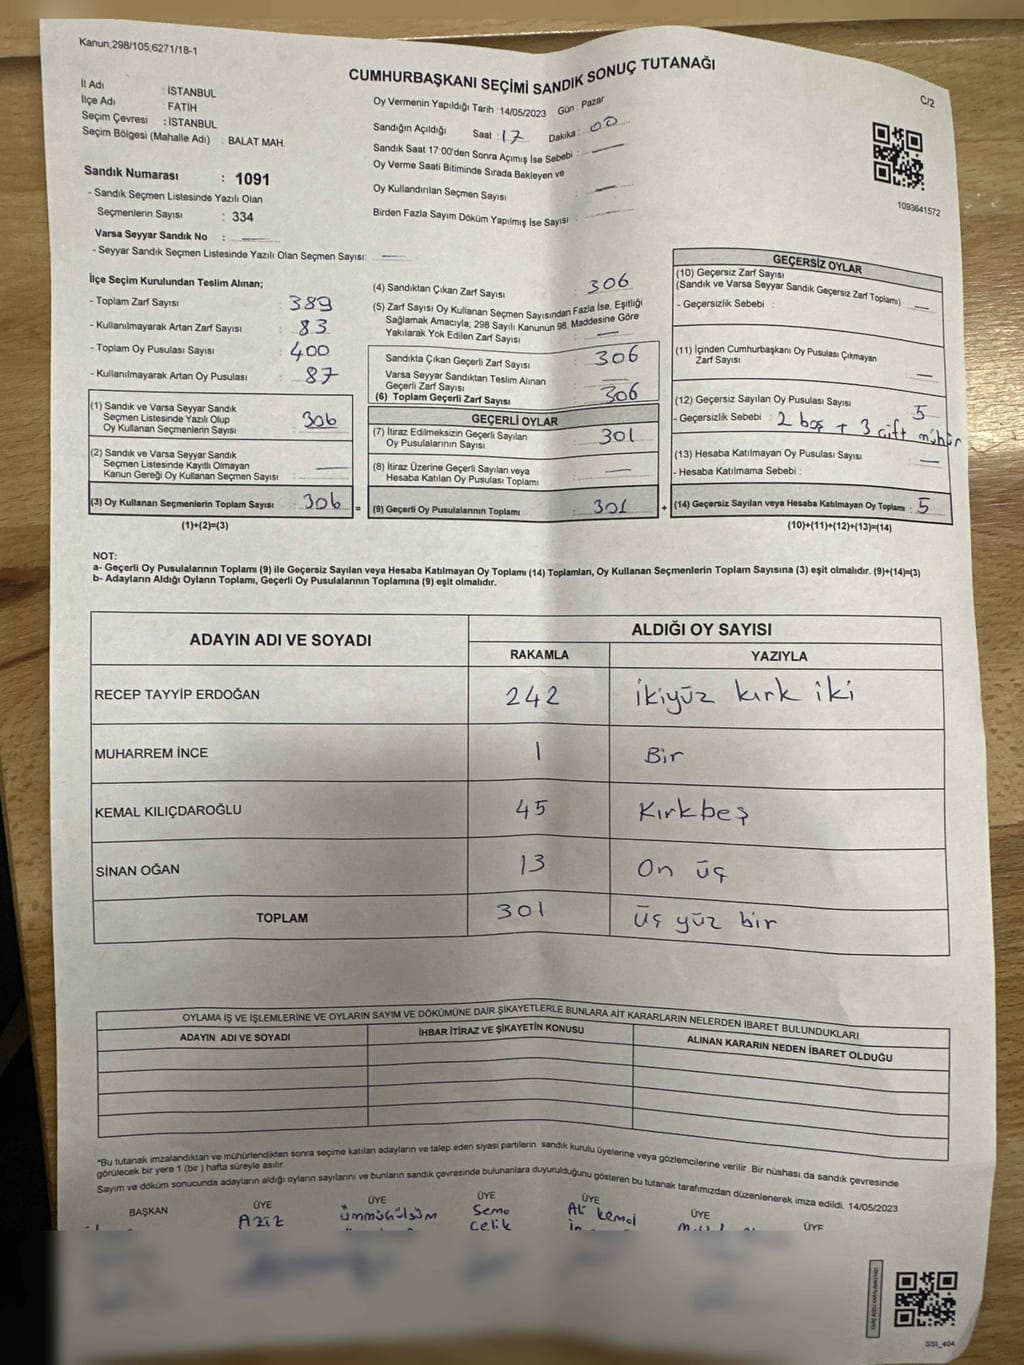 Kanun;298/105;6271/18-1
CUMHURBAŞKANI SEÇİMİ SANDIK SONUÇ TUTANAĞI
C/2
İl Adı : İSTANBUL
İlçe Adı : FATİH
Seçim Çevresi : İSTANBUL
Seçim Bölgesi (Mahalle Adı) : BALAT MAH.
Oy Vermenin Yapıldığı Tarih : 14/05/2023 Gün : Pazar
Sandığın Açıldığı Saat : 17 Dakika : 00
Sandık Saat 17:00'den Sonra Açımış İse Sebebi :
Oy Verme Saati Bitiminde Sırada Bekleyen ve
Oy Kullandırılan Seçmen Sayısı :
Birden Fazla Sayım Döküm Yapılmış İse Sayısı :
1093641572
Sandık Numarası : 1091
- Sandık Seçmen Listesinde Yazılı Olan
Seçmenlerin Sayısı : 334
Varsa Seyyar Sandık No :
- Seyyar Sandık Seçmen Listesinde Yazılı Olan Seçmen Sayısı:
İlçe Seçim Kurulundan Teslim Alınan;
- Toplam Zarf Sayısı : 389
- Kullanılmayarak Artan Zarf Sayısı : 83
- Toplam Oy Pusulası Sayısı : 400
- Kullanılmayarak Artan Oy Pusulası : 87
(1) Sandık ve Varsa Seyyar Sandık
Seçmen Listesinde Yazılı Olup
Oy Kullanan Seçmenlerin Sayısı : 306
(2) Sandık ve Varsa Seyyar Sandık
Seçmen Listesinde Kayıtlı Olmayan
Kanun Gereği Oy Kullanan Seçmen Sayısı :
(3) Oy Kullanan Seçmenlerin Toplam Sayısı : 306 =
(1)+(2)=(3)
(4) Sandıktan Çıkan Zarf Sayısı : 306
(5) Zarf Sayısı Oy Kullanan Seçmen Sayısından Fazla İse, Eşitliği
Sağlamak Amacıyla; 298 Sayılı Kanunun 98. Maddesine Göre
Yakılarak Yok Edilen Zarf Sayısı :
Sandıkta Çıkan Geçerli Zarf Sayısı : 306
Varsa Seyyar Sandıktan Teslim Alınan
Geçerli Zarf Sayısı :
(6) Toplam Geçerli Zarf Sayısı : 306
GEÇERLİ OYLAR
(7) İtiraz Edilmeksizin Geçerli Sayılan
Oy Pusulalarının Sayısı : 301
(8) İtiraz Üzerine Geçerli Sayılan veya
Hesaba Katılan Oy Pusulası Toplamı :
(9) Geçerli Oy Pusulalarının Toplamı : 301 +
GEÇERSİZ OYLAR
(10) Geçersiz Zarf Sayısı
(Sandık ve Varsa Seyyar Sandık Geçersiz Zarf Toplamı) :
- Geçersizlik Sebebi :
(11) İçinden Cumhurbaşkanı Oy Pusulası Çıkmayan
Zarf Sayısı :
(12) Geçersiz Sayılan Oy Pusulası Sayısı : 5
- Geçersizlik Sebebi : 2 boş + 3 çift mühür
(13) Hesaba Katılmayan Oy Pusulası Sayısı :
- Hesaba Katılmama Sebebi :
(14) Geçersiz Sayılan veya Hesaba Katılmayan Oy Toplamı : 5
(10)+(11)+(12)+(13)=(14)
NOT:
a- Geçerli Oy Pusulalarının Toplamı (9) ile Geçersiz Sayılan veya Hesaba Katılmayan Oy Toplamı (14) Toplamları, Oy Kullanan Seçmenlerin Toplam Sayısına (3) eşit olmalıdır. (9)+(14)=(3)
b- Adayların Aldığı Oyların Toplamı, Geçerli Oy Pusulalarının Toplamına (9) eşit olmalıdır.
ADAYIN ADI VE SOYADI
ALDIĞI OY SAYISI
RAKAMLA YAZIYLA
RECEP TAYYİP ERDOĞAN 242 İkiyüz kırk iki
MUHARREM İNCE 1 Bir
KEMAL KILIÇDAROĞLU 45 Kırkbeş
SİNAN OĞAN 13 On üç
TOPLAM 301 Üç yüz bir
OYLAMA İŞ VE İŞLEMLERİNE VE OYLARIN SAYIM VE DÖKÜMÜNE DAİR ŞİKAYETLERLE BUNLARA AİT KARARLARIN NELERDEN İBARET BULUNDUKLARI
ADAYIN ADI VE SOYADI İHBAR İTİRAZ VE ŞİKAYETİN KONUSU ALINAN KARARIN NEDEN İBARET OLDUĞU
*Bu tutanak imzalandıktan ve mühürlendikten sonra seçime katılan adayların ve talep eden siyasi partilerin sandık kurulu üyelerine veya gözlemcilerine verilir. Bir nüshası da sandık çevresinde
görülecek bir yere 1 (bir ) hafta süreyle asılır.
Sayım ve döküm sonucunda adayların aldığı oyların sayılarını ve bunların sandık çevresinde bulunanlara duyurulduğunu gösteren bu tutanak tarafımızdan düzenlenerek imza edildi. 14/05/2023
BAŞKAN ÜYE ÜYE ÜYE ÜYE ÜYE ÜYE
Aziz Ümmügülsüm Sema Ali Kemal
Çelik
SSI_404